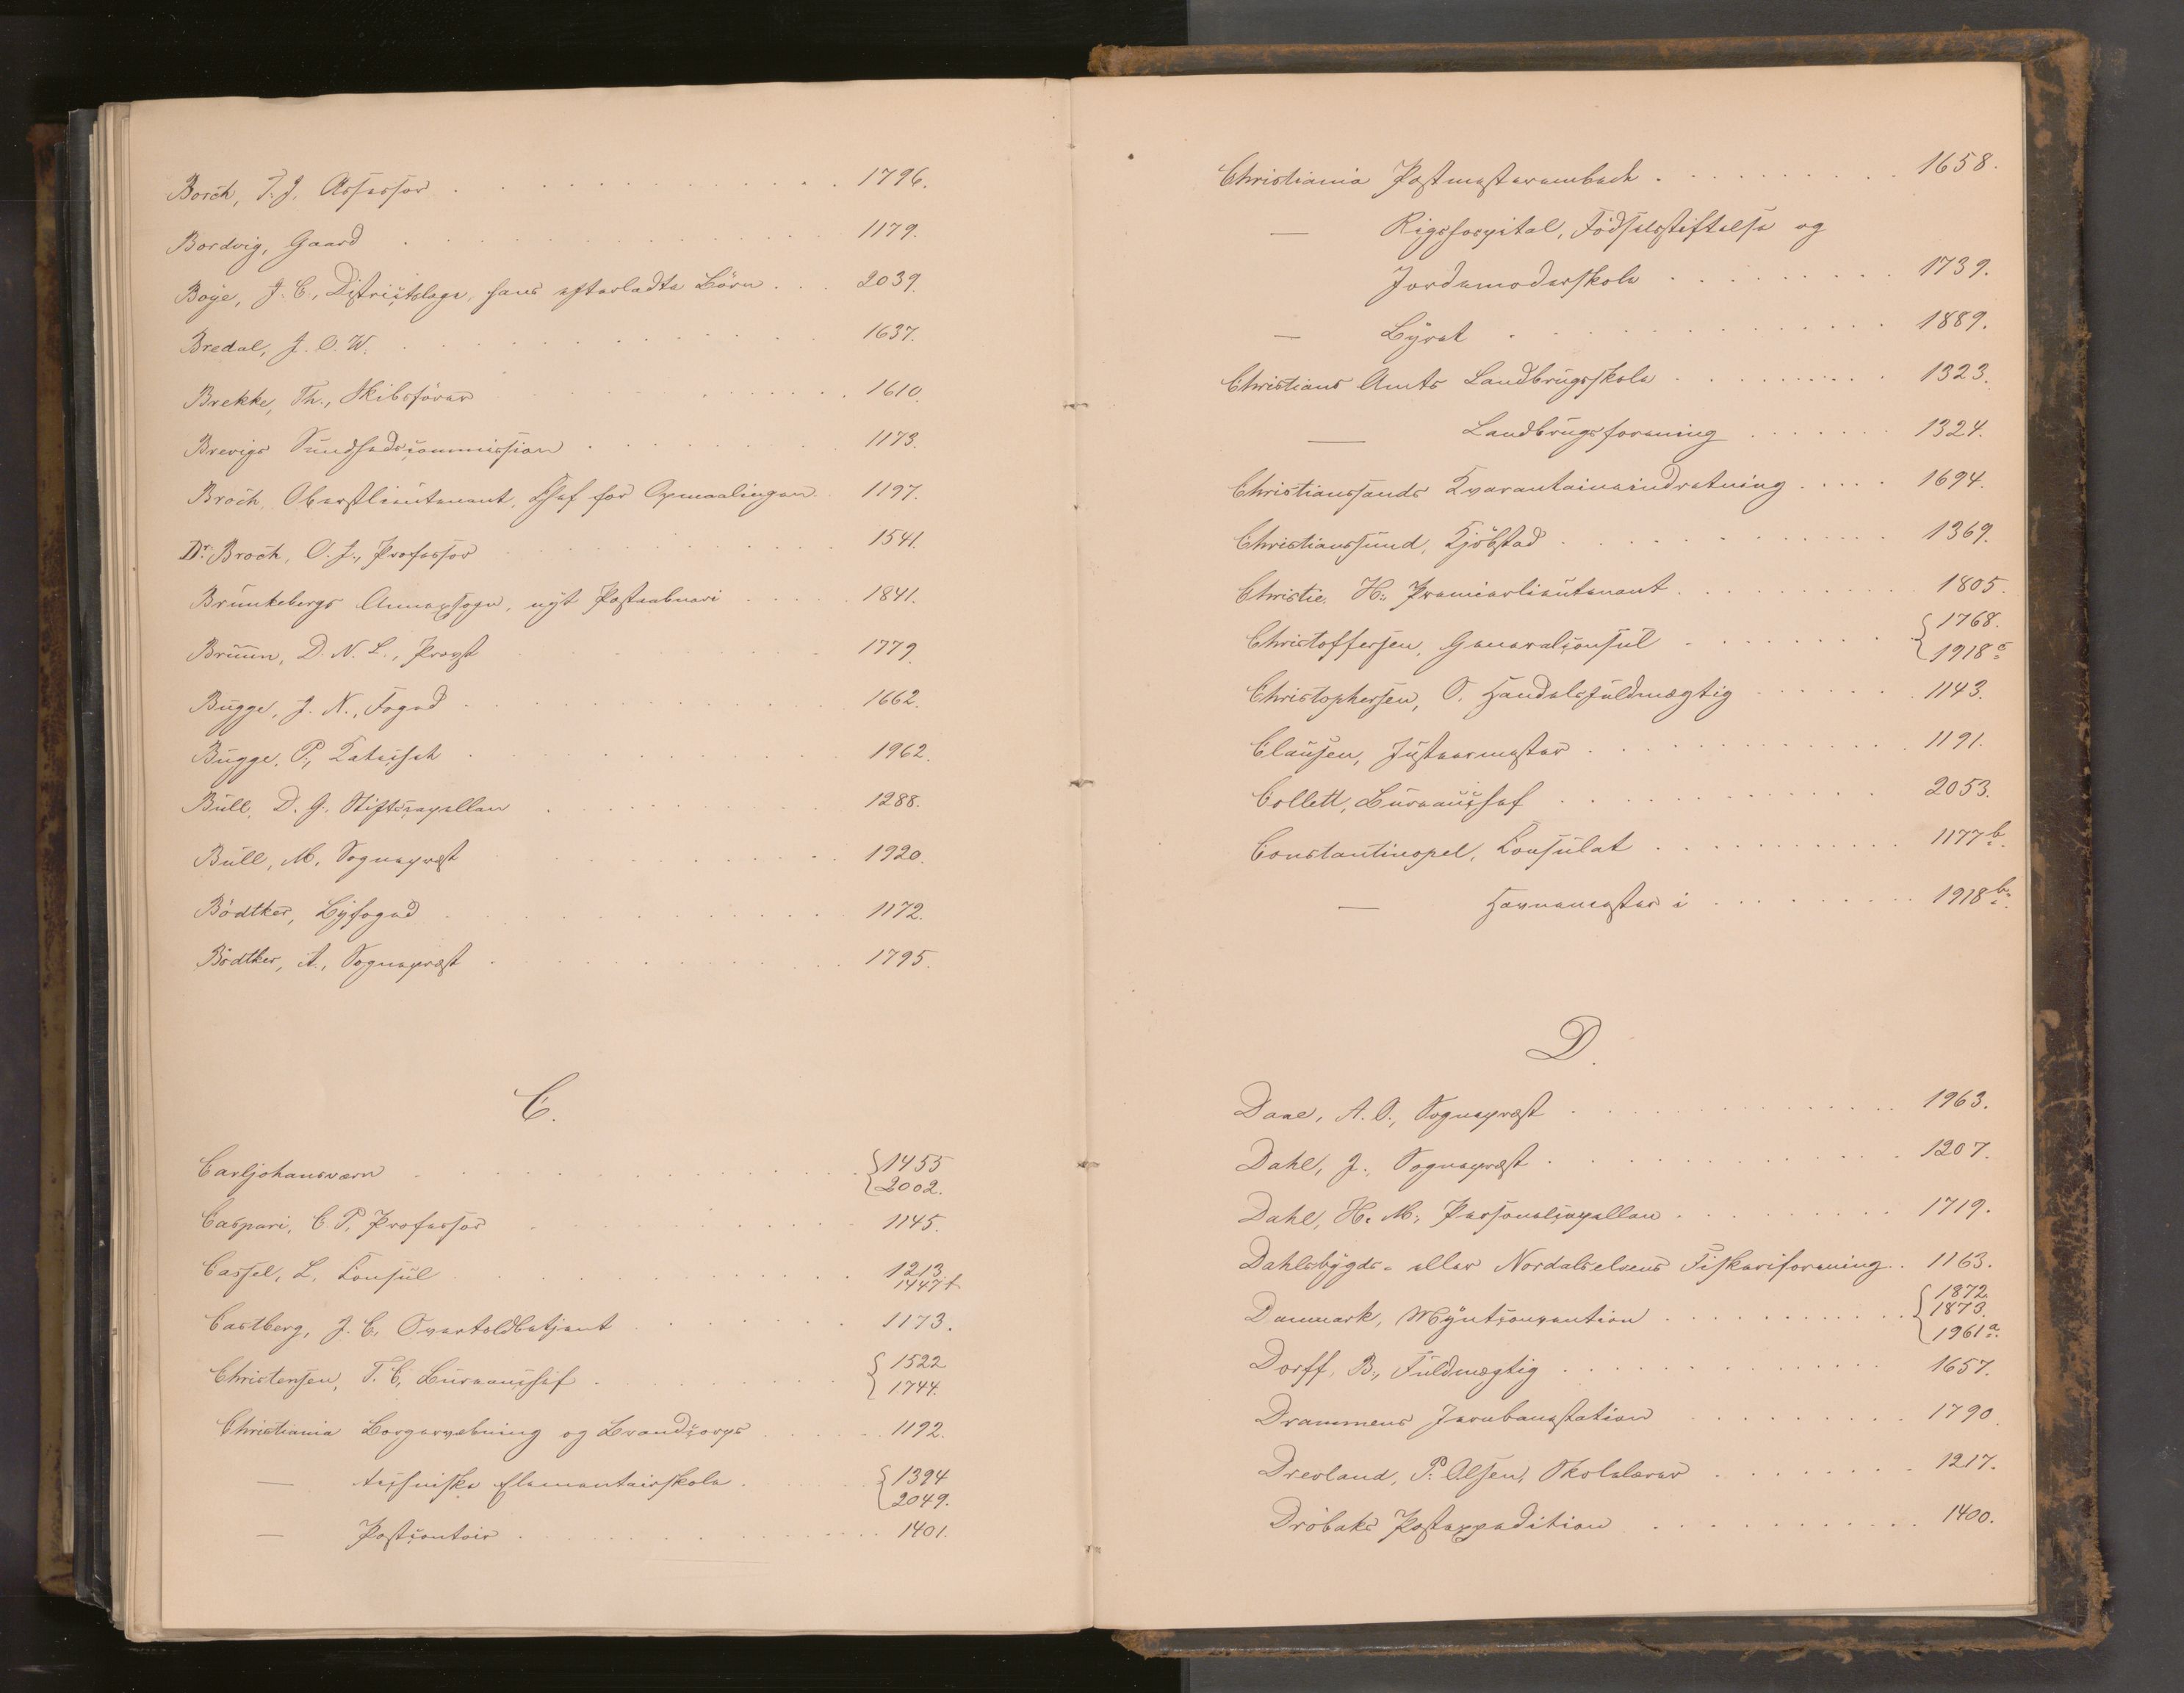 Borch, T. J. Assessor . . . . . 1796.
Bordvig, Gaard . . . . . 1179.
Boye, J. C., Districtslæge, hans efterladte Börn . . . 2039.
Bredal, J. O. W. . . . . . 1637.
Brekke, Th., Skibsförer . . . . . 1610.
Brevigs Sundhedscommission . . . . . 1173.
Broch, Oberstlieutenant, Chef for Opmaalingen 1197.
Dr. Broch, O. J., Professor . . . . . 1541.
Brunkebergs Annexsogn, nyt Postaabneri . . . . . 1841.
Bruun, D. N. L., Provst . . . . . 1779.
Bugge, J. N., Foged . . . . . 1662.
Bugge, P., . . . . . 1962.
Bull, D. G., Stiftscapellan . . . . . 1288.
Bull, M., Sognepræst . . . . . 1920.
Bödtker, Byfoged . . . . . 1172.
Bödtker, A., Sognepræst . . . . . 1795.
C.
Carljohansværn . . . . . { 1455
2002.
Caspari, C. P., Professor . . . . . 1145.
Cassel, L., Consul . . . . . 1213.
1447 f.
Castberg, J. C., Overtoldbetjent . . . . . 1173.
Christensen, T. C., Bureauchef . . . . . { 1522
1744.
Christiania Borgervæbning og Brandcorps . . . . . 1192.
— techniske Elementairskole . . . . . { 1394
2049.
— Postcontoir . . . . . 1401.
Christiania Postmesterembede . . . . . 1658.
— Rigshospital, Födselsstiftelse og
Jordemoderskole . . . . . 1739.
— Byret . . . . . 1889.
Christians Amts Landbrugsskole . . . . . 1323.
— Landbrugsforening . . . . . 1324.
Christianssands Kvarantaineindretning . . . . . 1694.
Christianssund, Kjöbstad . . . . . 1369.
Christie, H., Premierlieutenant . . . . . 1805.
Christoffersen, Generalconsul . . . . . { 1768.
1918 c.
Christophersen, O. Handelsfuldmægtig . . . . . 1143.
Clausen, Justeermester . . . . . 1191.
Collett, Bureauchef . . . . . 2053.
Constantinopel, Consulat . . . . . 1177 b.
— Havnemester i . . . . . 1918 b.
D.
Daae, A. O., Sognepræst . . . . . 1963.
Dahl, J., Sognepræst . . . . . 1207.
Dahl, H. M., Personelcapellan . . . . . 1719.
Dahlsbygds- eller Nordalselvens Fiskeriforening . . 1163.
Danmark, Myntconvention . . . . . { 1872
1873.
1961 a.
Dorff, B., Fuldmægtig . . . . . 1657.
Drammens Jernbanestation . . . . . 1790.
Drevland, P. Olsen, Skolelærer . . . . . 1217.
Dröbaks Postexpedition . . . . . 1400.